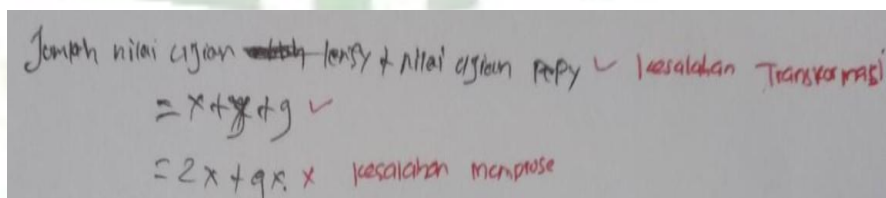 Jumlah nilai ujian lensy + nilai ujian pepy ✓ kesalahan Transformasi
= x + y + 9 ✓
= 2x + 9x. x kesalahan memprose